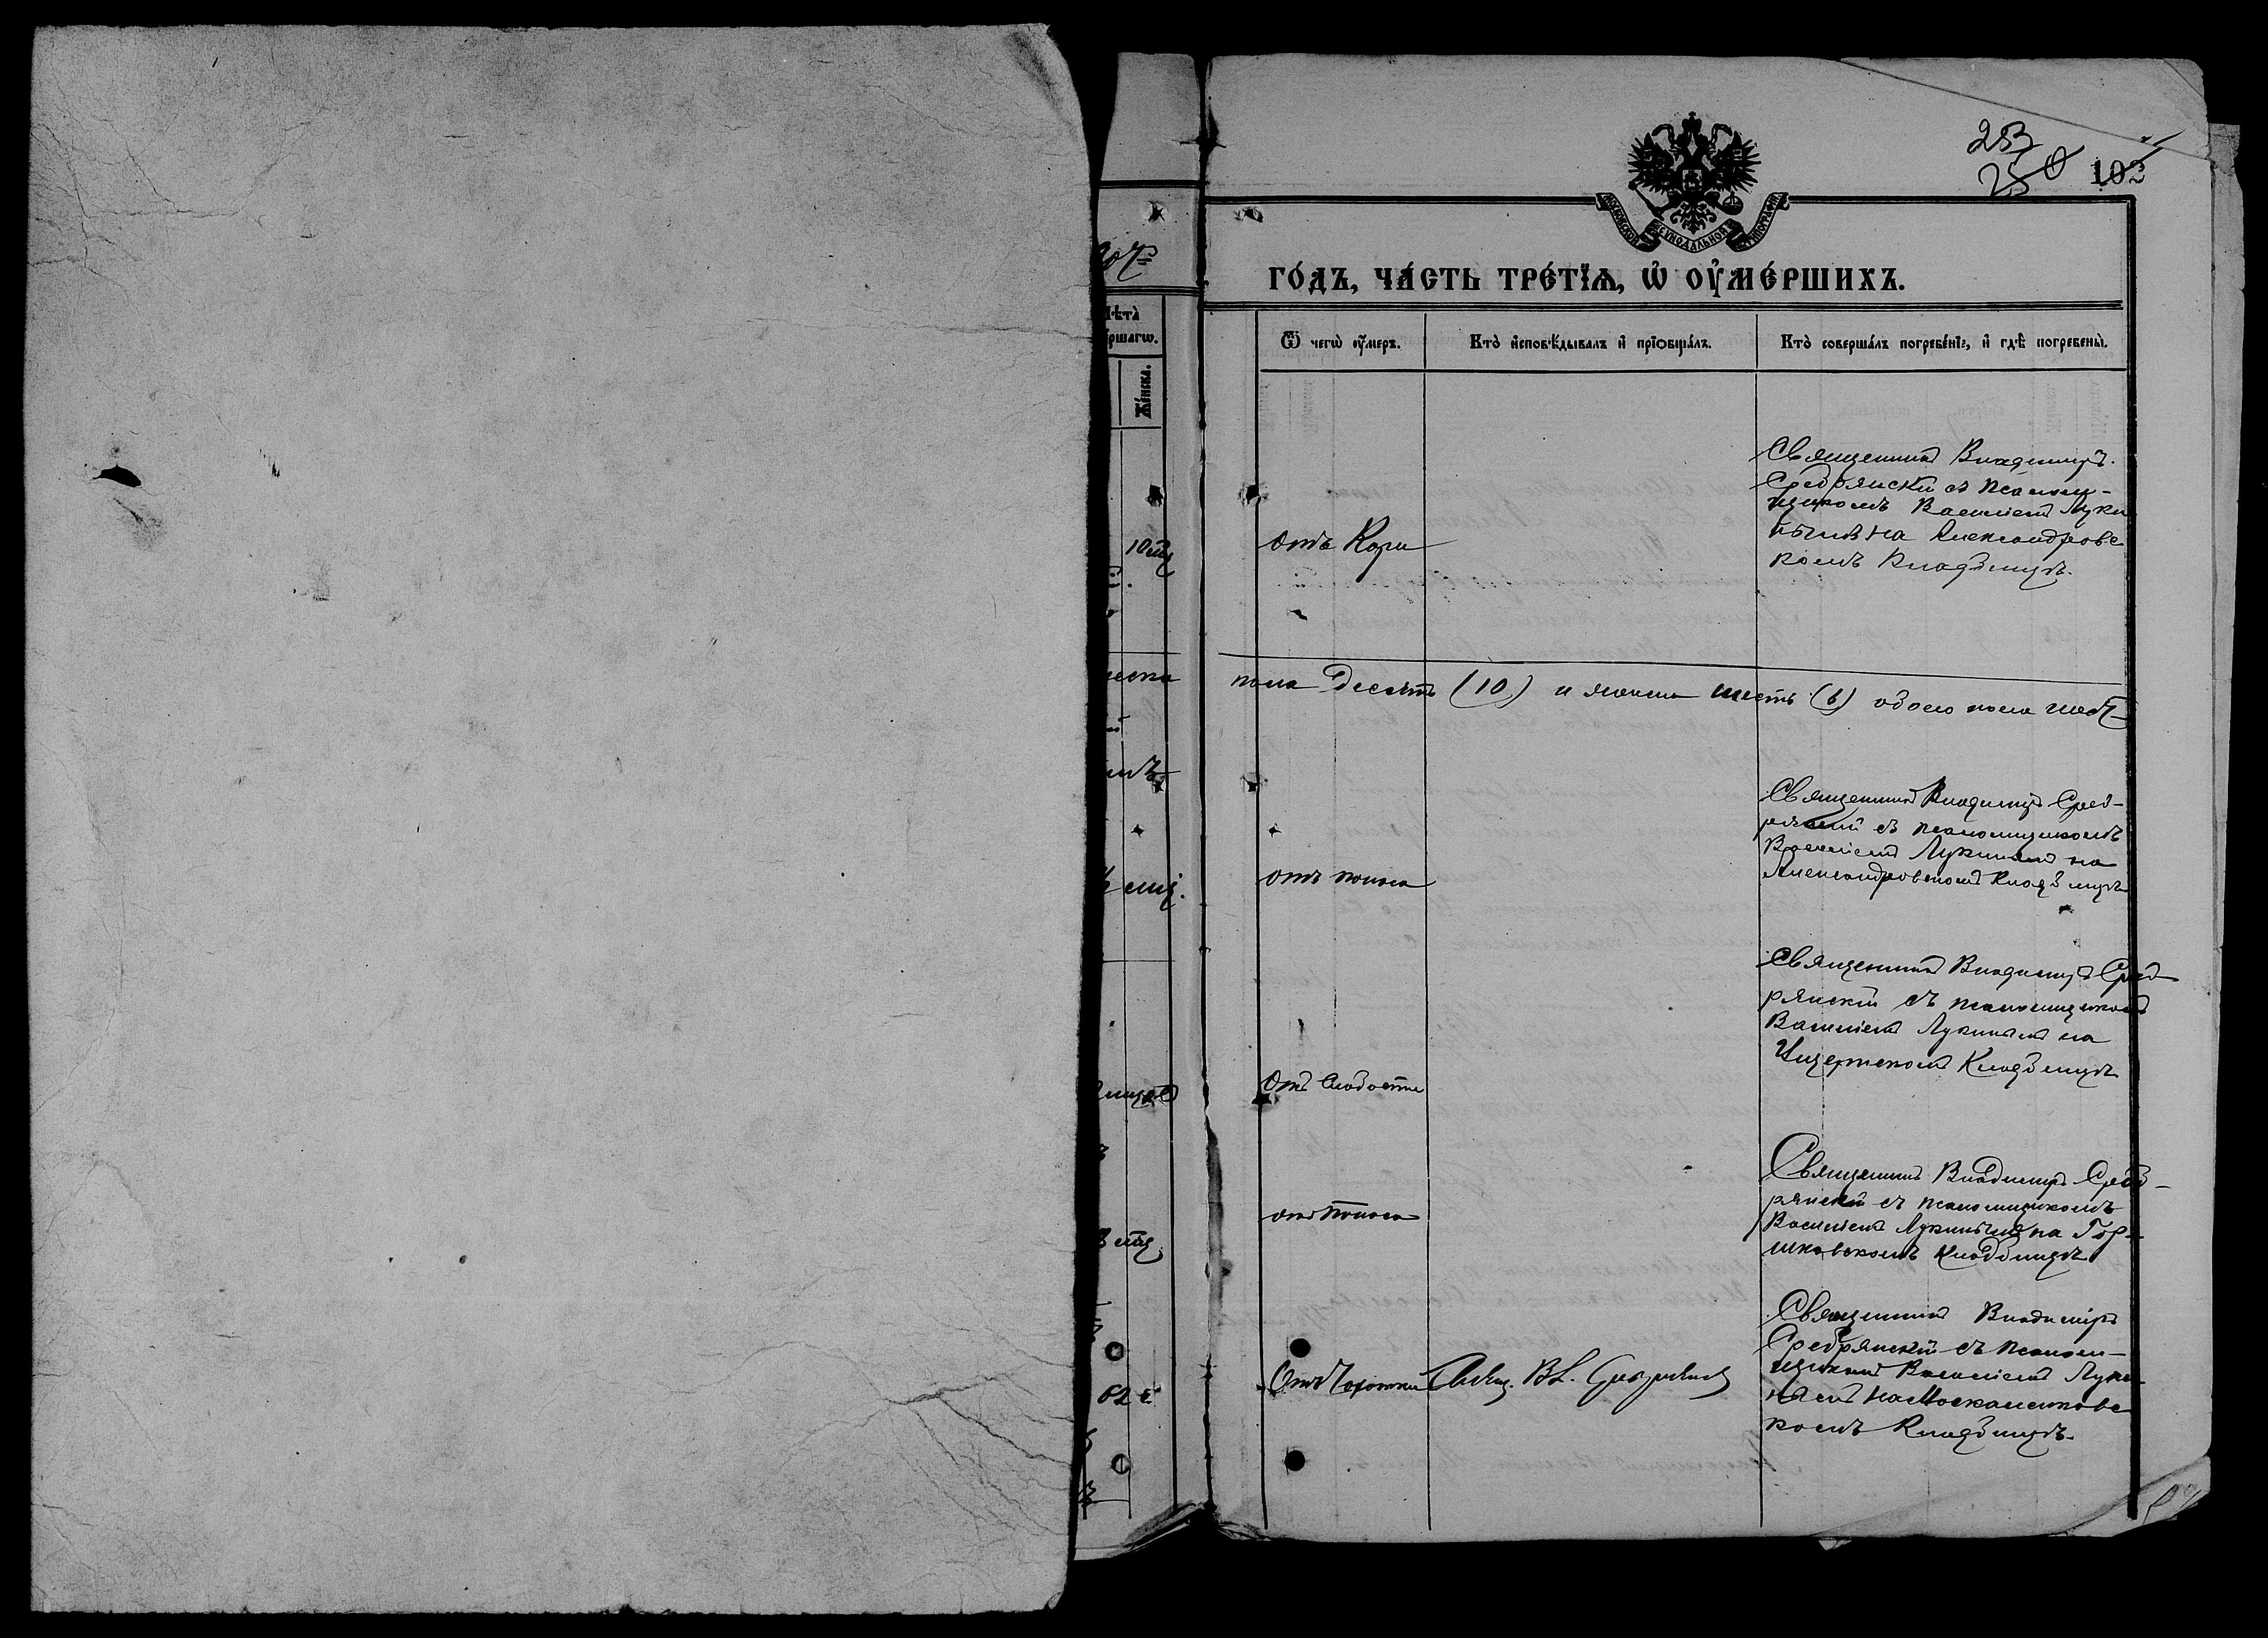 253
250 102
МОСКОВСКОЙ СѴНОДАЛЬНОЙ ТИПОГРАФІИ
ГО́ДЪ, ЧА́СТЬ ТРЕ́ТЇѦ, Ѡ҆ ОУ҆МЕ́РШИХЪ.
Ѿ чегѡ̀ оу҆́меръ.
Кто̀ и҆сповѣ́дывалъ и҆ прїѡбща́лъ.
Кто̀ соверша́лъ погребе́нїе, и҆ гдѣ̀ погребены̀.
Же́нска.
10 мц
отъ Кори
Священникъ Владимиръ
Сребрянскій съ псалом-
щикомъ Василіемъ Луки
нымъ на Александровс
комъ Кладбищѣ.
пола десять (10) и женска шесть (6) обоего пола шест-
отъ поноса
Священникъ Владимиръ Среб-
рянскій съ псаломщикомъ
Василіемъ Лукинымъ на
Александровскомъ Кладбищѣ
отъ слабости
Священникъ Владимиръ Среб
рянскій съ псаломщикомъ
Василіемъ Лукинымъ на
Кладбищѣ
отъ поноса
Священникъ Владимиръ Среб-
рянскій съ псаломщикомъ
Василіемъ Лукинымъ на Гор-
шковскомъ Кладбищѣ
62
Отъ Чахотки
Священ. Вл. Сребрянскій
Священникъ Владиміръ
Сребрянскій съ псалом-
щикомъ Василіемъ Луки-
нымъ на
комъ Кладбищѣ.